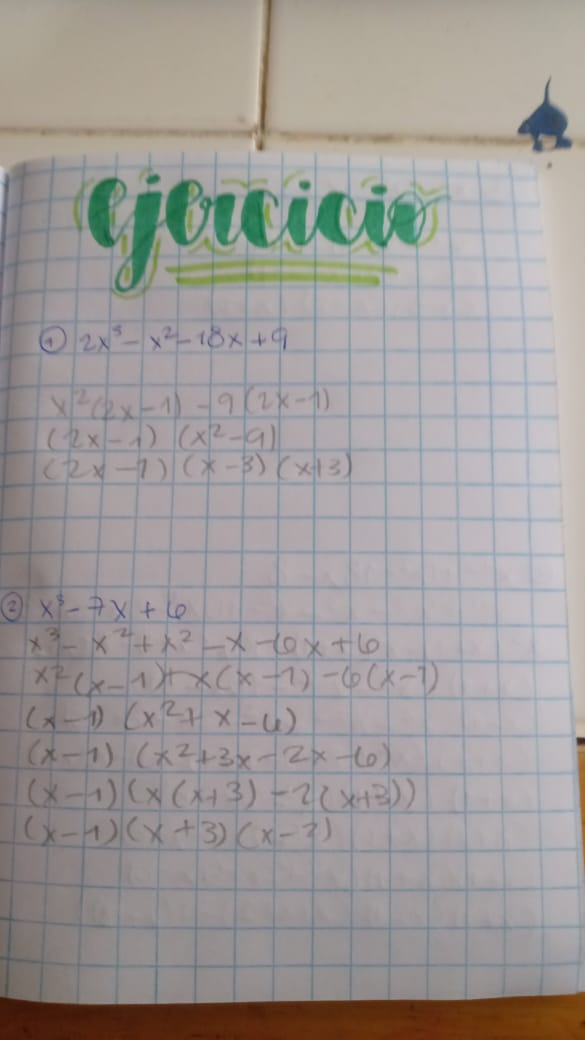 ejercicio
① 2x³ - x² - 18x + 9
x²(2x - 1) - 9(2x - 1)
(2x - 1) (x² - 9)
(2x - 1) (x - 3) (x + 3)
② x³ - 7x + 6
x³ - x² + x² - x - 6x + 6
x²(x - 1) + x(x - 1) - 6(x - 1)
(x - 1) (x² + x - 6)
(x - 1) (x² + 3x - 2x - 6)
(x - 1)(x(x + 3) - 2(x + 3))
(x - 1)(x + 3)(x - 2)